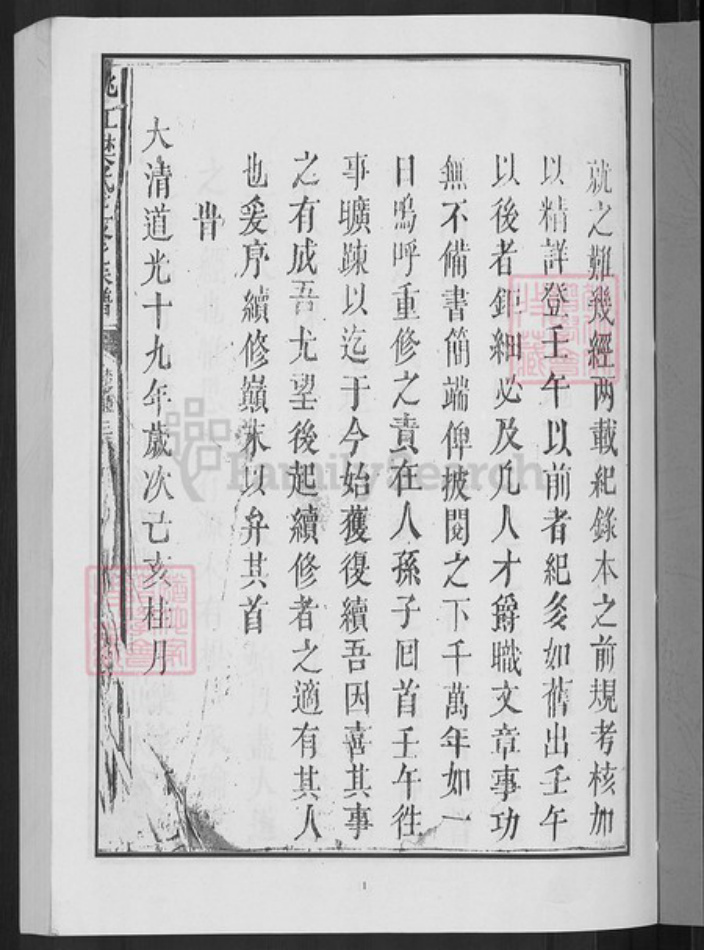 就之難幾經两載紀錄本之前規考核加
以精詳登壬午以前者紀多如舊出壬午
以後者鉅細必及凡人才爵職文章事功
無不備書簡端俾披閱之下千萬年如一
日嗚呼重修之責在人孫子囘首壬午徃
事曠踈以迄于今始獲復續吾因喜其事
之有成吾尤望後起續修者之適有其人
也爰序續修巔末以弁其首
旹
大清道光十九年歲次己亥桂月
FamilySearch
1